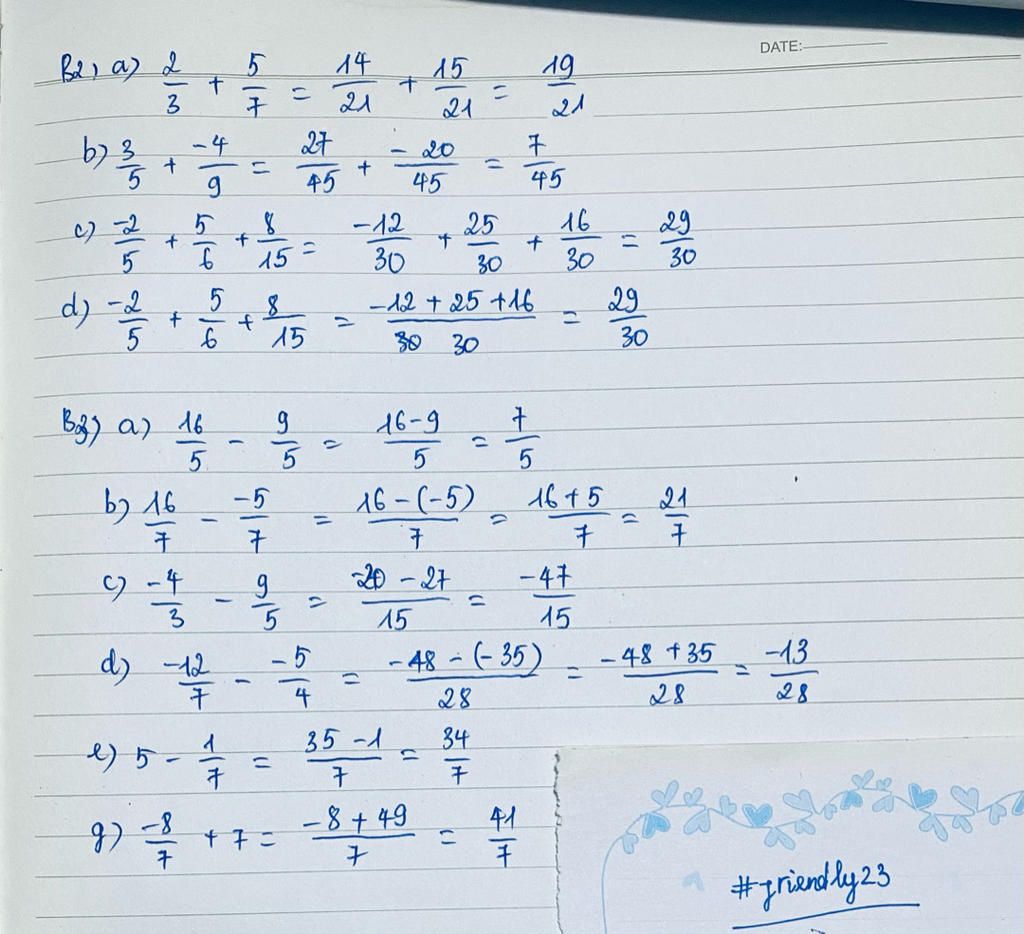 DATE:
B2, a) 2/3 + 5/7 = 14/21 + 15/21 = 19/21
b) 3/5 + -4/9 = 27/45 + -20/45 = 7/45
c) -2/5 + 5/6 + 8/15 = -12/30 + 25/30 + 16/30 = 29/30
d) -2/5 + 5/6 + 8/15 = -12 + 25 + 16/30 = 29/30
B3) a) 16/5 - 9/5 = 16-9/5 = 7/5
b) 16/7 - -5/7 = 16-(-5)/7 = 16+5/7 = 21/7
c) -4/3 - 9/5 = -20-27/15 = -47/15
d) -12/7 - -5/4 = -48-(-35)/28 = -48+35/28 = -13/28
e) 5 - 1/7 = 35-1/7 = 34/7
g) -8/7 + 7 = -8+49/7 = 41/7
#friendly23